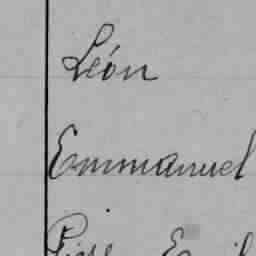 Léon
Emmanuel